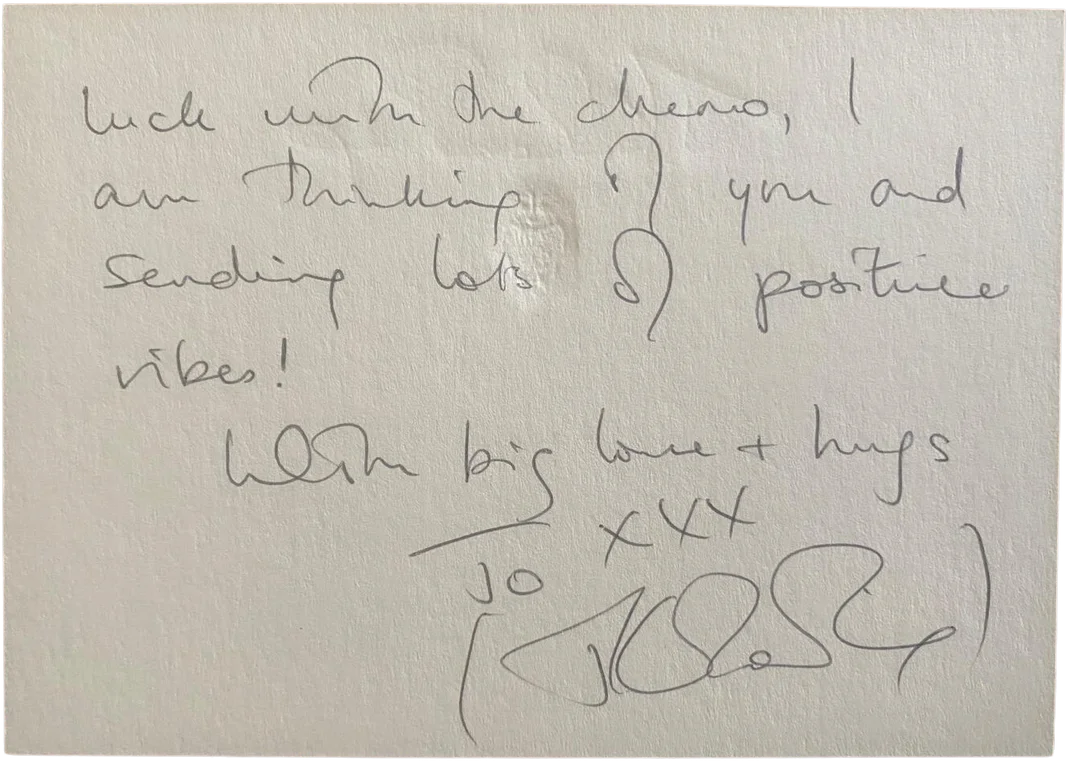 luck with the chemo, I
am thinking of you and
sending lots of positive
vibes!
With big love + hugs
xxx
Jo